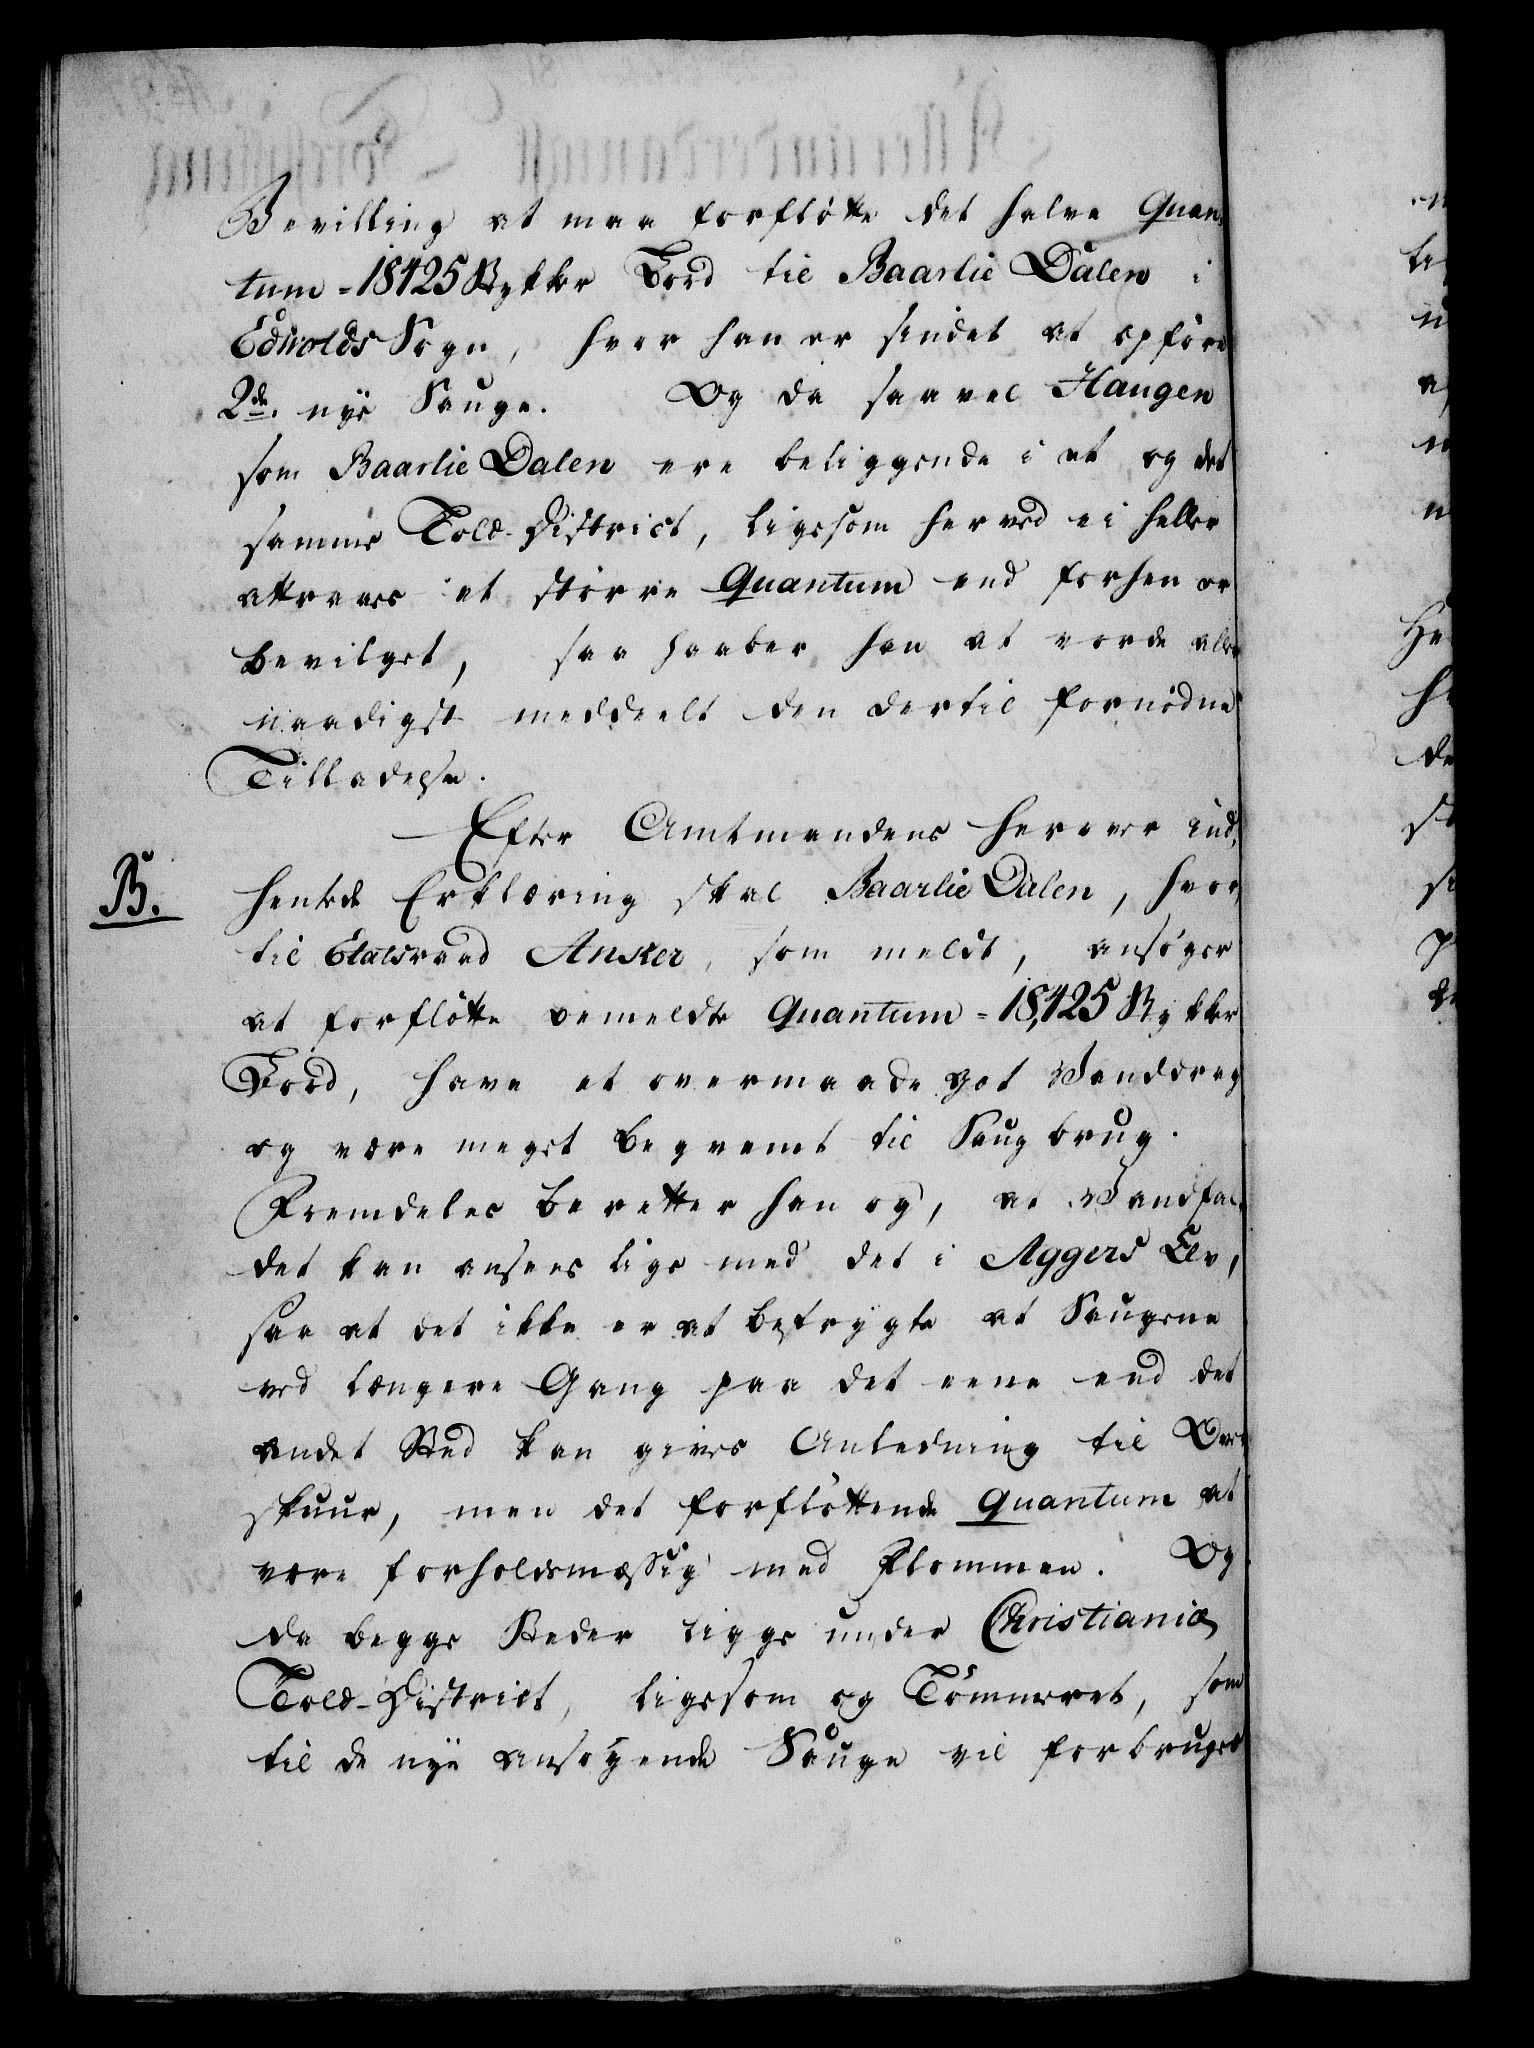 Bevilling at maa forflötte det halve Quan-
tum = 18425 Stykker Bord til Baarlie Dalen i
Edwolds Sogn, hvor han er sindet at opföre
2de. nye Sauge. Og da saavel Haugen
som Baarlie Dalen ere beliggende i et og det
samme Told-District, ligesom herved ei heller
attraaes et större Quantum end forhen er
bevilget, saa haaber han at vorde aller
naadigst meddeelt den dertil fornödne
Tilladelse.
Efter Amtmandens herover ind-
B. hentede Erklæring skal Baarlie Dalen, hvor-
til Etatsraad Anker, som meldt, ansöger
at forflötte bemeldte Quantum = 18,425 Stykker
Bord, have et overmaade got Vanddrag
og være meget beqvemt til Saugbrug.
Fremdeles beretter han og, at Vandfal-
det kan ansees lige med det i Aggers Elv,
saa at det ikke er at befrygte at Saugene
ved længere Gang paa det eene end det
andet Sted kan gives Anledning til Over-
skuur, men det forflöttende Quantum at
være forholdsmæssig med Flommen. Og
da begge Steder ligge under Christiania
Told-District, ligesom og Tömmeret, som
til de nye ansögende Sauge vil forbruges